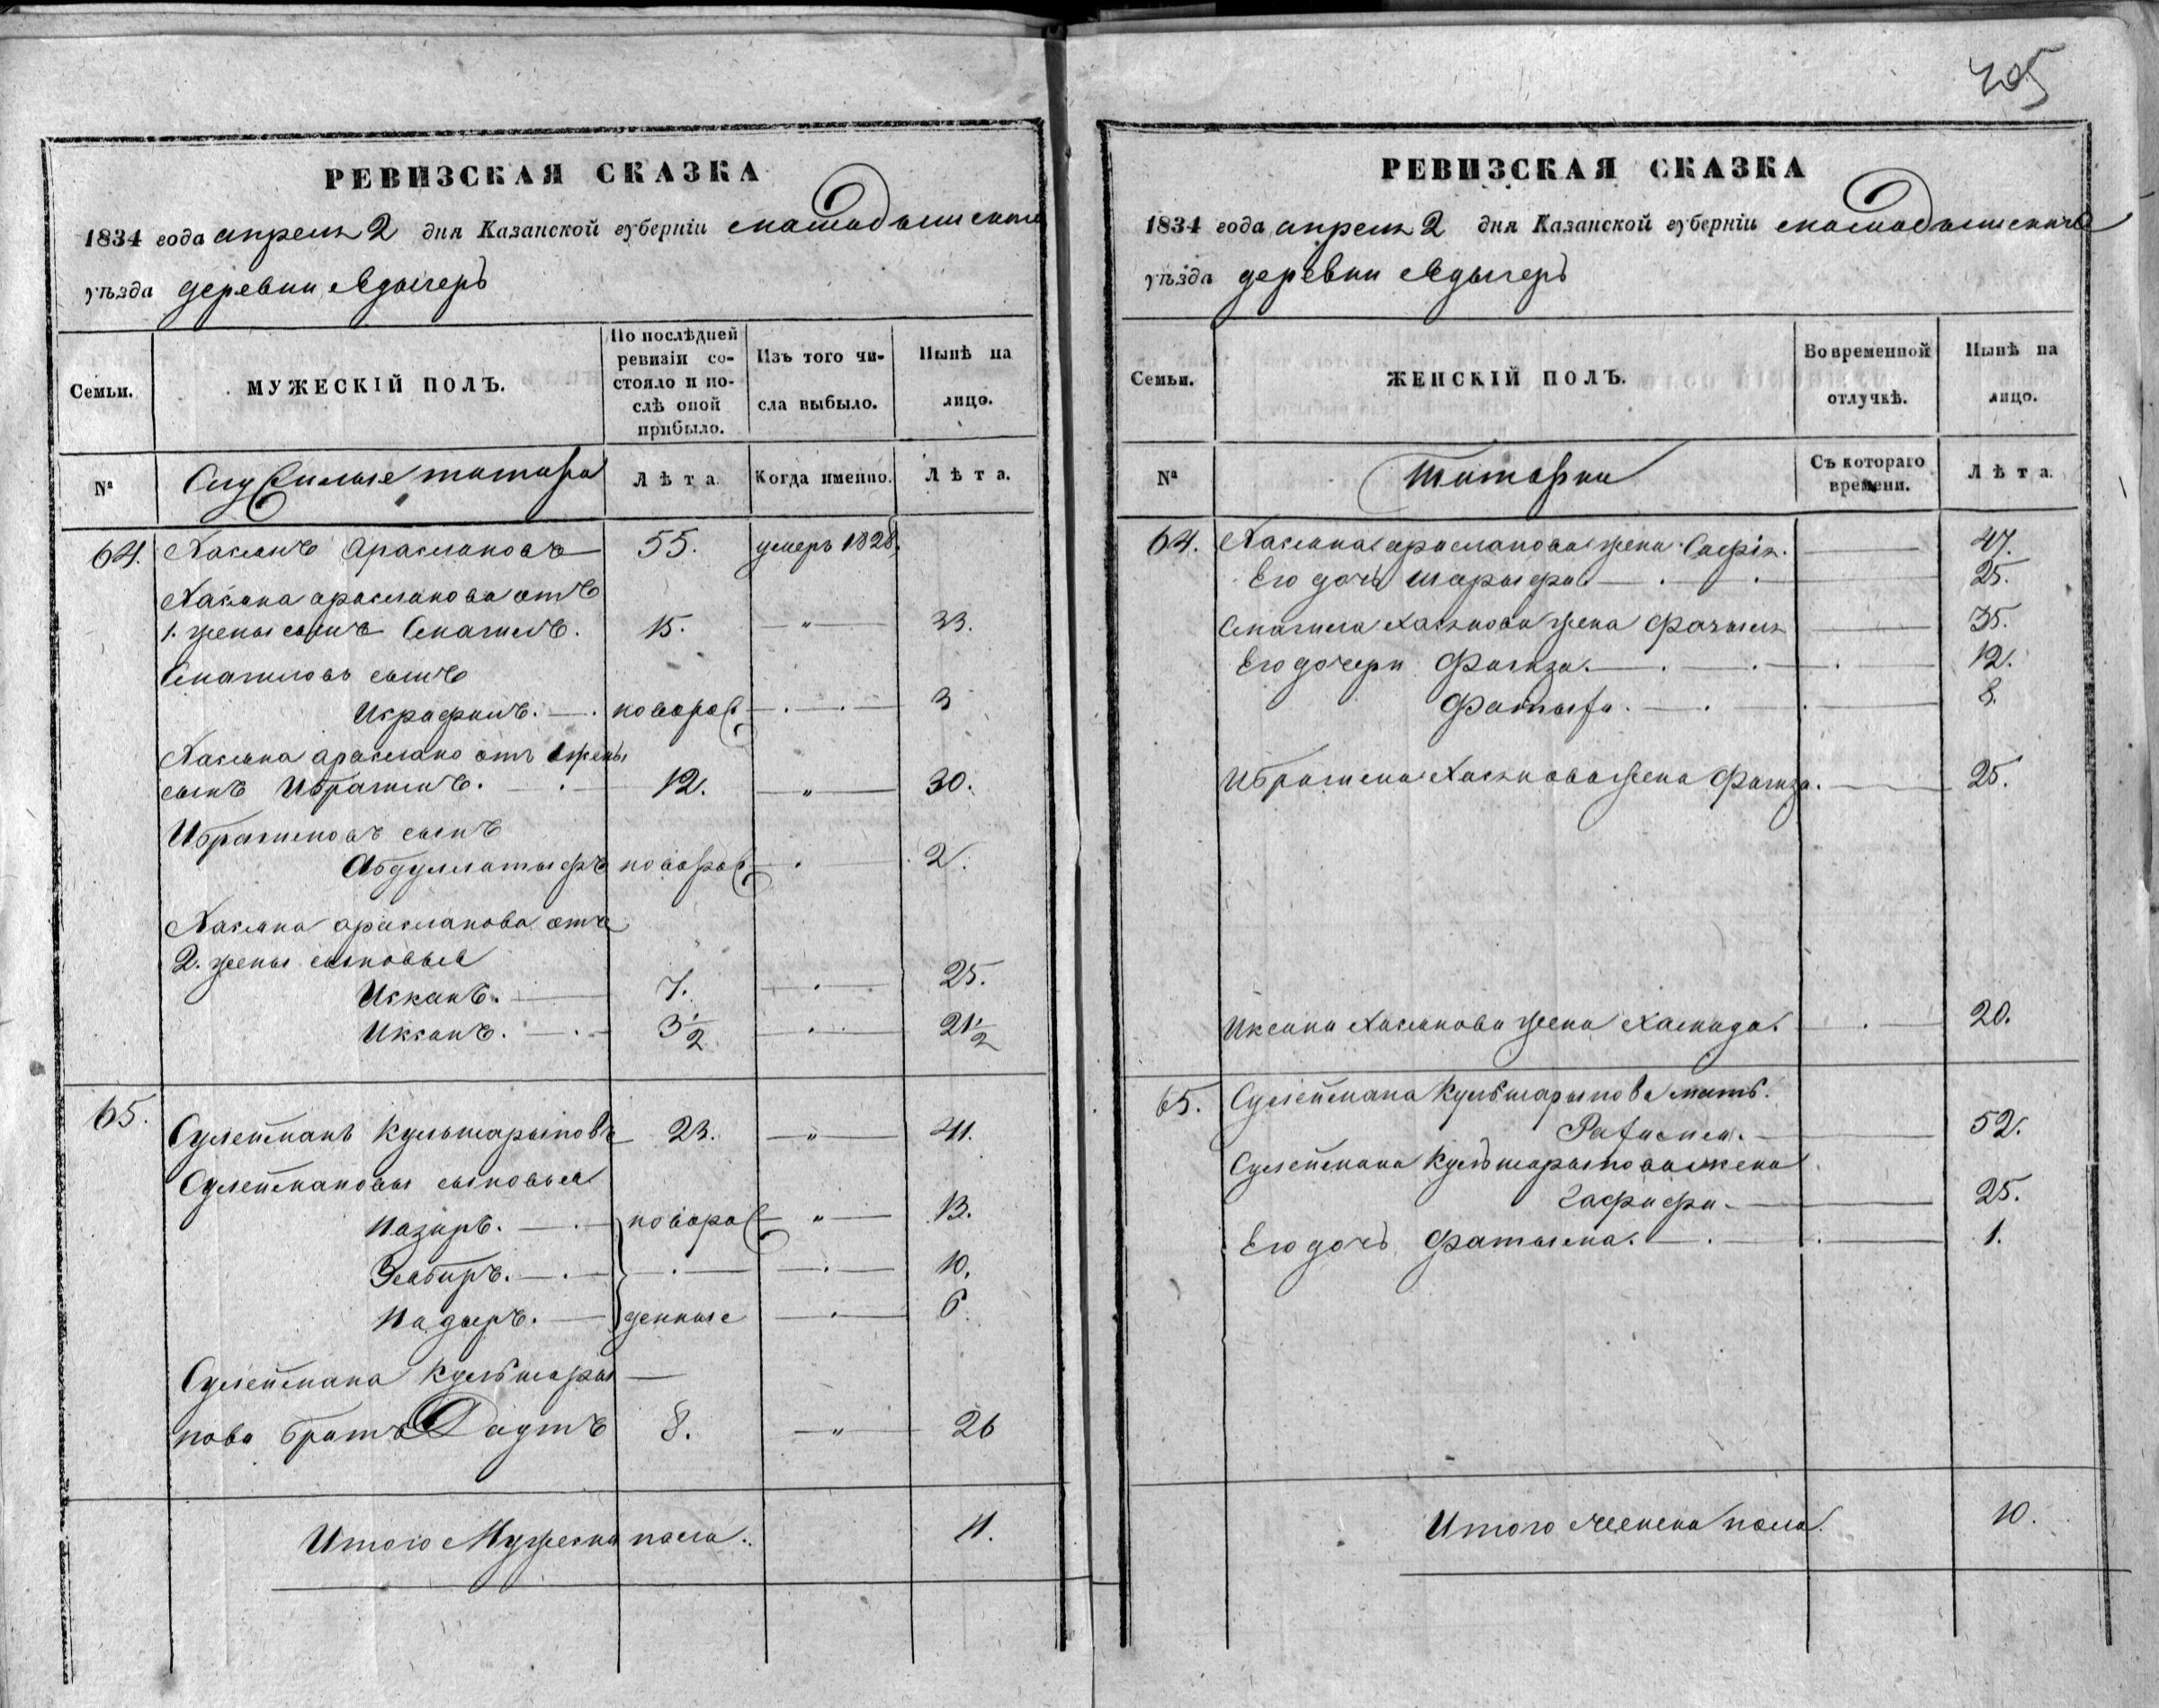 405
РЕВИЗСКАЯ СКАЗКА
1834 года апреля 2 дня Казанской губерніи мамадышскаго
уѣзда деревни Адыгеръ
Семьи.
МУЖЕСКІЙ ПОЛЪ.
По послѣдней ревизіи состояло и послѣ оной прибыло.
Изъ того числа выбыло.
Нынѣ на лицо.
№
Служилые татара
Лѣта.
Когда именно.
Лѣта.
64. Хасанъ Араслановъ 55. умеръ 1828.
Хасана арасланова отъ
1. жены сынъ Смагилъ. 15. " 33.
Смагиловъ сынъ
Исрафилъ. новорож 3
Хасана арасланова отъ 1 жены
сынъ Ибрагимъ. 12. " 30.
Ибрагимовъ сынъ
Абдуллатыфъ новорож 2.
Хасана арасланова отъ
2. жены сыновья
Исканъ. 7. 25.
Иксанъ. 3 1/2 21 1/2
65. Сулейманъ Кульшариповъ 23. " 41.
Сулеймановы сыновья
Назиръ. новорож " 13.
Зябиръ. 10.
Надыръ. денные 6
Сулеймана Кульшари
пова братъ Даутъ 8. " 26
Итого Мужеска пола. 11.
РЕВИЗСКАЯ СКАЗКА
1834 года апреля 2 дня Казанской губерніи мамадышскаго
уѣзда деревни Адыгеръ
Семьи.
ЖЕНСКІЙ ПОЛЪ.
Во временной отлучкѣ.
Нынѣ на лицо.
№
Татарки
Съ котораго времени.
Лѣта.
64. Хасана арасланова жена Сафія. 47.
Его дочь Шарыфа. 25.
Смагила Хасанова жена 35.
Его дочери Фаиза. 12.
8.
Ибрагима Хасанова жена Фаиза. 25.
Иксана Хасанова жена Хамида. 20.
65. Сулеймана Кульшарипова мать.
52.
Сулеймана Кульшарипова жена
Гафифа. 25.
Его дочь Фатыма. 1.
Итого Женска пола. 10.